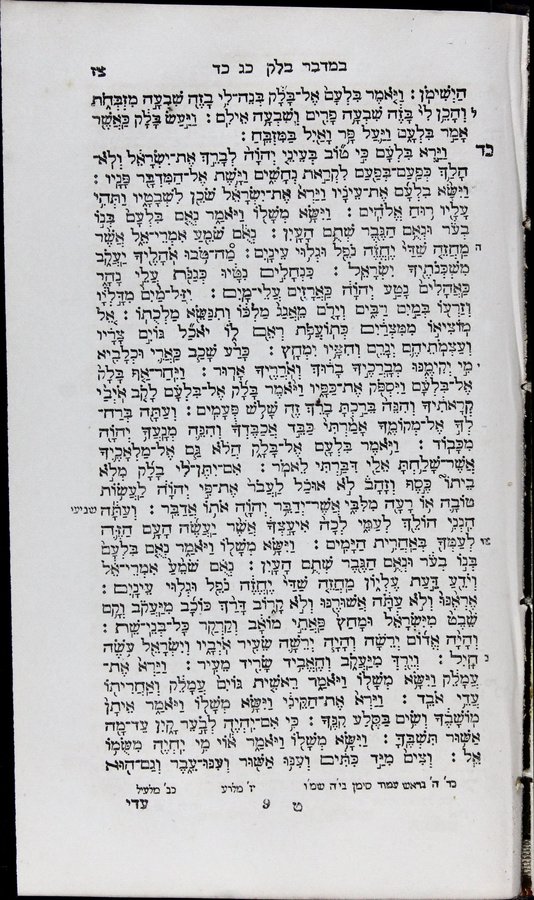 במדבר בלק כג כד צז
הַיְשִׁימֹן׃ וַיֹּאמֶר בִּלְעָם אֶל־בָּלָק בְּנֵה־לִי בָזֶה שִׁבְעָה מִזְבְּחֹת
וְהָכֵן לִי בָּזֶה שִׁבְעָה פָרִים וְשִׁבְעָה אֵילִם׃ וַיַּעַשׂ בָּלָק כַּאֲשֶׁר
אָמַר בִּלְעָם וַיַּעַל פָּר וָאַיִל בַּמִּזְבֵּחַ׃
כד וַיַּרְא בִּלְעָם כִּי טוֹב בְּעֵינֵי יְהוָה לְבָרֵךְ אֶת־יִשְׂרָאֵל וְלֹא־
הָלַךְ כְּפַעַם־בְּפַעַם לִקְרַאת נְחָשִׁים וַיָּשֶׁת אֶל־הַמִּדְבָּר פָּנָיו׃
וַיִּשָּׂא בִלְעָם אֶת־עֵינָיו וַיַּרְא אֶת־יִשְׂרָאֵל שֹׁכֵן לִשְׁבָטָיו וַתְּהִי
עָלָיו רוּחַ אֱלֹהִים׃ וַיִּשָּׂא מְשָׁלוֹ וַיֹּאמַר נְאֻם בִּלְעָם בְּנוֹ
בְעֹר וּנְאֻם הַגֶּבֶר שְׁתֻם הָעָיִן׃ נְאֻם שֹׁמֵעַ אִמְרֵי־אֵל אֲשֶׁר
ה מַחֲזֵה שַׁדַּי יֶחֱזֶה נֹפֵל וּגְלוּי עֵינָיִם׃ מַה־טֹּבוּ אֹהָלֶיךָ יַעֲקֹב
מִשְׁכְּנֹתֶיךָ יִשְׂרָאֵל׃ כִּנְחָלִים נִטָּיוּ כְּגַנֹּת עֲלֵי נָהָר
כַּאֲהָלִים נָטַע יְהוָה כַּאֲרָזִים עֲלֵי־מָיִם׃ יִזַּל־מַיִם מִדָּלְיָו
וְזַרְעוֹ בְּמַיִם רַבִּים וְיָרֹם מֵאֲגַג מַלְכּוֹ וְתִנַּשֵּׂא מַלְכֻתוֹ׃ אֵל
מוֹצִיאוֹ מִמִּצְרַיִם כְּתוֹעֲפֹת רְאֵם לוֹ יֹאכַל גּוֹיִם צָרָיו
וְעַצְמֹתֵיהֶם יְגָרֵם וְחִצָּיו יִמְחָץ׃ כָּרַע שָׁכַב כַּאֲרִי וּכְלָבִיא
י מִי יְקִימֶנּוּ מְבָרֲכֶיךָ בָרוּךְ וְאֹרְרֶיךָ אָרוּר׃ וַיִּחַר־אַף בָּלָק
אֶל־בִּלְעָם וַיִּסְפֹּק אֶת־כַּפָּיו וַיֹּאמֶר בָּלָק אֶל־בִּלְעָם לָקֹב אֹיְבַי
קְרָאתִיךָ וְהִנֵּה בֵּרַכְתָּ בָרֵךְ זֶה שָׁלֹשׁ פְּעָמִים׃ וְעַתָּה בְּרַח־
לְךָ אֶל־מְקוֹמֶךָ אָמַרְתִּי כַּבֵּד אֲכַבֶּדְךָ וְהִנֵּה מְנָעֲךָ יְהוָה
מִכָּבוֹד׃ וַיֹּאמֶר בִּלְעָם אֶל־בָּלָק הֲלֹא גַּם אֶל־מַלְאָכֶיךָ
אֲשֶׁר־שָׁלַחְתָּ אֵלַי דִּבַּרְתִּי לֵאמֹר׃ אִם־יִתֶּן־לִי בָלָק מְלֹא
בֵיתוֹ כֶּסֶף וְזָהָב לֹא אוּכַל לַעֲבֹר אֶת־פִּי יְהוָה לַעֲשׂוֹת
טוֹבָה אוֹ רָעָה מִלִּבִּי אֲשֶׁר־יְדַבֵּר יְהוָה אֹתוֹ אֲדַבֵּר׃ וְעַתָּה שביעי
הִנְנִי הוֹלֵךְ לְעַמִּי לְכָה אִיעָצְךָ אֲשֶׁר יַעֲשֶׂה הָעָם הַזֶּה
לְעַמְּךָ בְּאַחֲרִית הַיָּמִים׃ וַיִּשָּׂא מְשָׁלוֹ וַיֹּאמַר נְאֻם בִּלְעָם
בְּנוֹ בְעֹר וּנְאֻם הַגֶּבֶר שְׁתֻם הָעָיִן׃ נְאֻם שֹׁמֵעַ אִמְרֵי־אֵל
וְיֹדֵעַ דַּעַת עֶלְיוֹן מַחֲזֵה שַׁדַּי יֶחֱזֶה נֹפֵל וּגְלוּי עֵינָיִם׃
אֶרְאֶנּוּ וְלֹא עַתָּה אֲשׁוּרֶנּוּ וְלֹא קָרוֹב דָּרַךְ כּוֹכָב מִיַּעֲקֹב וְקָם
שֵׁבֶט מִיִּשְׂרָאֵל וּמָחַץ פַּאֲתֵי מוֹאָב וְקַרְקַר כָּל־בְּנֵי־שֵׁת׃
וְהָיָה אֱדוֹם יְרֵשָׁה וְהָיָה יְרֵשָׁה שֵׂעִיר אֹיְבָיו וְיִשְׂרָאֵל עֹשֶׂה
חָיִל׃ וְיֵרְדְּ מִיַּעֲקֹב וְהֶאֱבִיד שָׂרִיד מֵעִיר׃ וַיַּרְא אֶת־
עֲמָלֵק וַיִּשָּׂא מְשָׁלוֹ וַיֹּאמַר רֵאשִׁית גּוֹיִם עֲמָלֵק וְאַחֲרִיתוֹ
עֲדֵי אֹבֵד׃ וַיַּרְא אֶת־הַקֵּינִי וַיִּשָּׂא מְשָׁלוֹ וַיֹּאמַר אֵיתָן
מוֹשָׁבֶךָ וְשִׂים בַּסֶּלַע קִנֶּךָ׃ כִּי אִם־יִהְיֶה לְבָעֵר קָיִן עַד־מָה
אַשּׁוּר תִּשְׁבֶּךָּ׃ וַיִּשָּׂא מְשָׁלוֹ וַיֹּאמַר אוֹי מִי יִחְיֶה מִשֻּׂמוֹ
אֵל׃ וְצִים מִיַּד כִּתִּים וְעִנּוּ אַשּׁוּר וְעִנּוּ־עֵבֶר וְגַם־הוּא
כד' ה' בראש עמוד סימן בי"ה שמ"ו יז' מלרע כב' מלעיל
ט 9 עדי